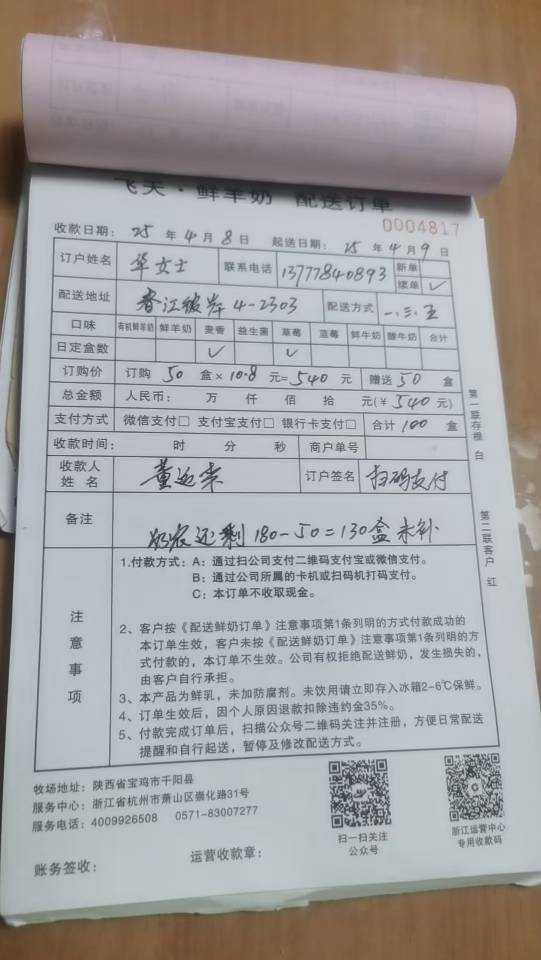 飞天·鲜羊奶 配送订单
0004817
收款日期: 25 年 4 月 8 日 起送日期: 25 年 4 月 9 日
订户姓名 华女士 联系电话 13777840893 新单
续单 ✓
配送地址 香江彼岸 4-2303 配送方式 一.三.五
口味 有机鲜羊奶 鲜羊奶 麦香 益生菌 草莓 蓝莓 鲜牛奶 酸牛奶 合计
日定盒数 ✓ ✓
订购价 订购 50 盒×10.8 元=540 元 赠送 50 盒
总金额 人民币: 万 仟 佰 拾 元(¥ 540 元)
支付方式 微信支付□ 支付宝支付□ 银行卡支付□ 合计 100 盒
收款时间: 时 分 秒 商户单号
收款人
姓 名 订户签名 扫码支付
备注 还剩 180-50=130盒 未补
第一联存根 白
第二联客户 红
注意事项
1.付款方式: A: 通过扫公司支付二维码支付宝或微信支付。
B: 通过公司所属的卡机或扫码机打码支付。
C: 本订单不收取现金。
2、客户按《配送鲜奶订单》注意事项第1条列明的方式付款成功的
本订单生效,客户未按《配送鲜奶订单》注意事项第1条列明的方
式付款的,本订单不生效。公司有权拒绝配送鲜奶,发生损失的,
由客户自行承担。
3、本产品为鲜乳,未加防腐剂。未饮用请立即存入冰箱2-6℃保鲜。
4、订单生效后,因个人原因退款扣除违约金35%。
5、付款完成订单后,扫描公众号二维码关注并注册,方便日常配送
提醒和自行起送,暂停及修改配送方式。
牧场地址: 陕西省宝鸡市千阳县
服务中心: 浙江省杭州市萧山区崇化路31号
服务电话: 4009926508 0571-83007277
扫一扫关注
公众号
浙江运营中心
专用收款码
账务签收: 运营收款章: